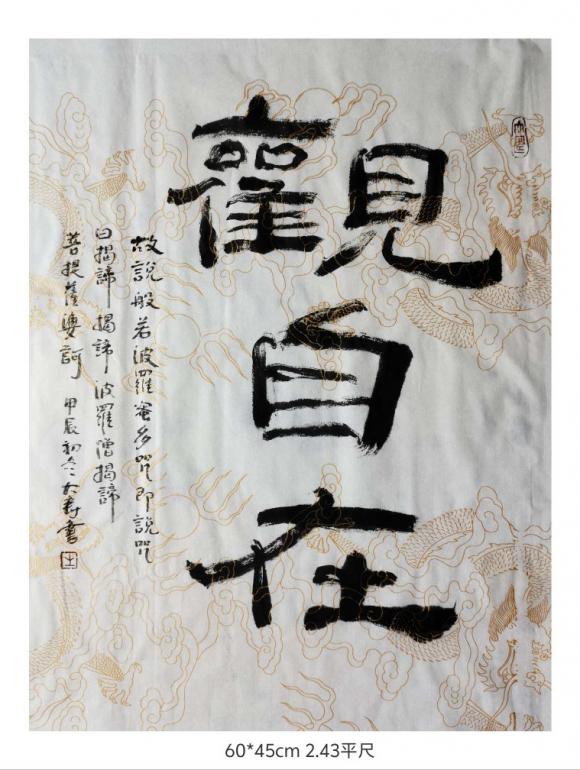 觀自在
故說般若波羅蜜多咒即說咒
曰揭諦揭諦波羅僧揭諦
菩提薩婆訶
甲辰初冬大壽書
60*45cm 2.43平尺